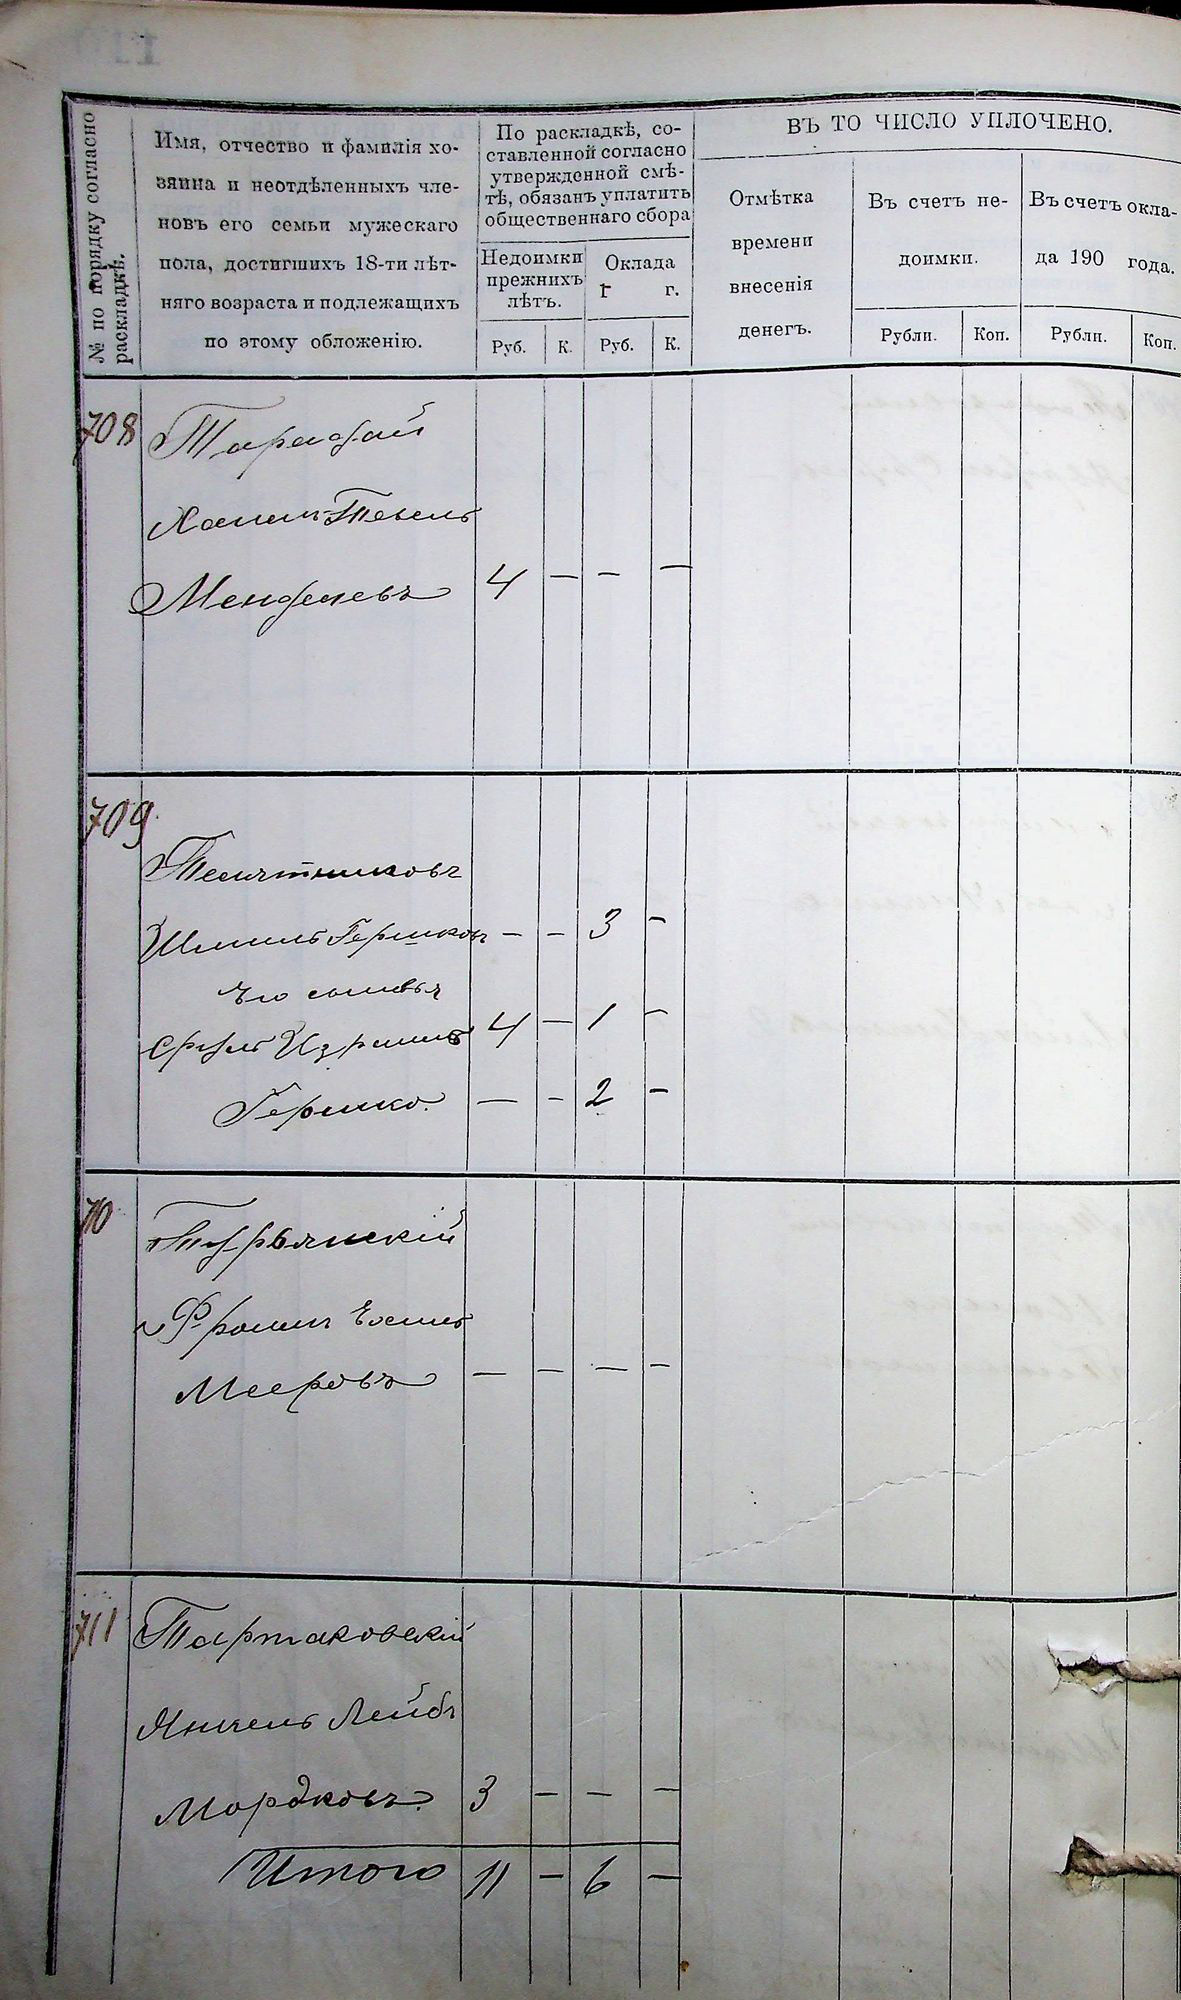 № по порядку согласно
раскладкѣ.
Имя, отчество и фамилія хо-
зяина и неотдѣленныхъ чле-
новъ его семьи мужескаго
пола, достигшихъ 18-ти лѣт-
няго возраста и подлежащихъ
по этому обложенію.
По раскладкѣ, со-
ставленной согласно
утвержденной смѣ-
тѣ, обязанъ уплатить
общественнаго сбора
Недоимки
прежнихъ
лѣтъ.
Оклада
г г.
Руб. К. Руб. К.
ВЪ ТО ЧИСЛО УПЛОЧЕНО.
Отмѣтка
времени
внесенія
денегъ.
Въ счетъ не-
доимки.
Въ счетъ окла-
да 190 года.
Рубли. Коп. Рубли. Коп.
708 Тарадай
Менделевъ 4 — — —
709
Шмиль Гершковъ — — 3 —
Его сыновья
Сруль Израиль 4 — 1 —
Гершко. — — 2 —
710 Турьянскій
Фроимъ Хаимъ
Мееровъ — — — —
711 Тартаковскій
Янкель Лейбъ
Мордковъ. 3 — — —
Итого 11 — 6 —